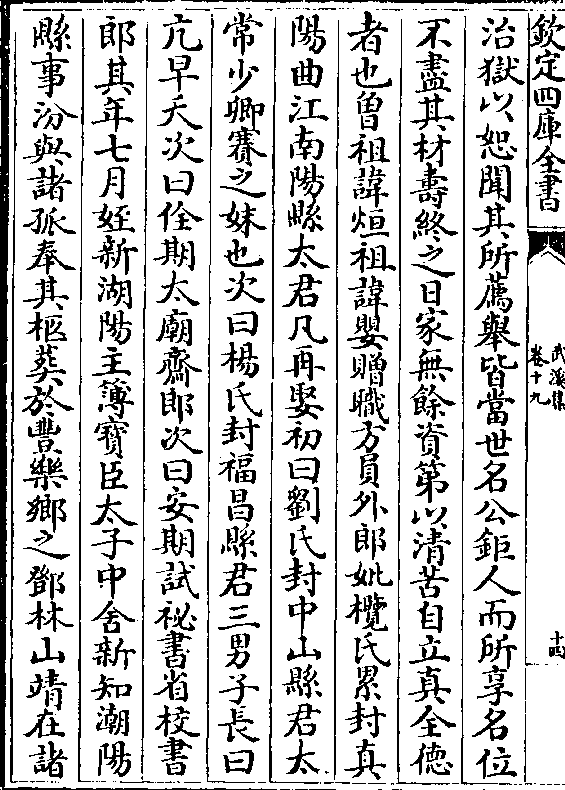 欽定四庫全書
武溪集
卷十九
十四
治獄以恕聞其所薦舉皆當世名公鉅人而所享名位
不盡其材壽終之日家無餘資第以清苦自立真全德
者也曽祖諱烜祖諱嬰贈職方員外郎妣欖氏累封真
陽曲江南陽縣太君凡再娶初曰劉氏封中山縣君太
常少卿賽之妹也次曰楊氏封福昌縣君三男子長曰
亢早夭次曰佺期太廟齋郎次曰安期試祕書省校書
郎其年七月姪新湖陽主簿寳臣太子中舍新知潮陽
縣事汾與諸孤奉其柩葬於豐樂鄉之鄧林山靖在諸